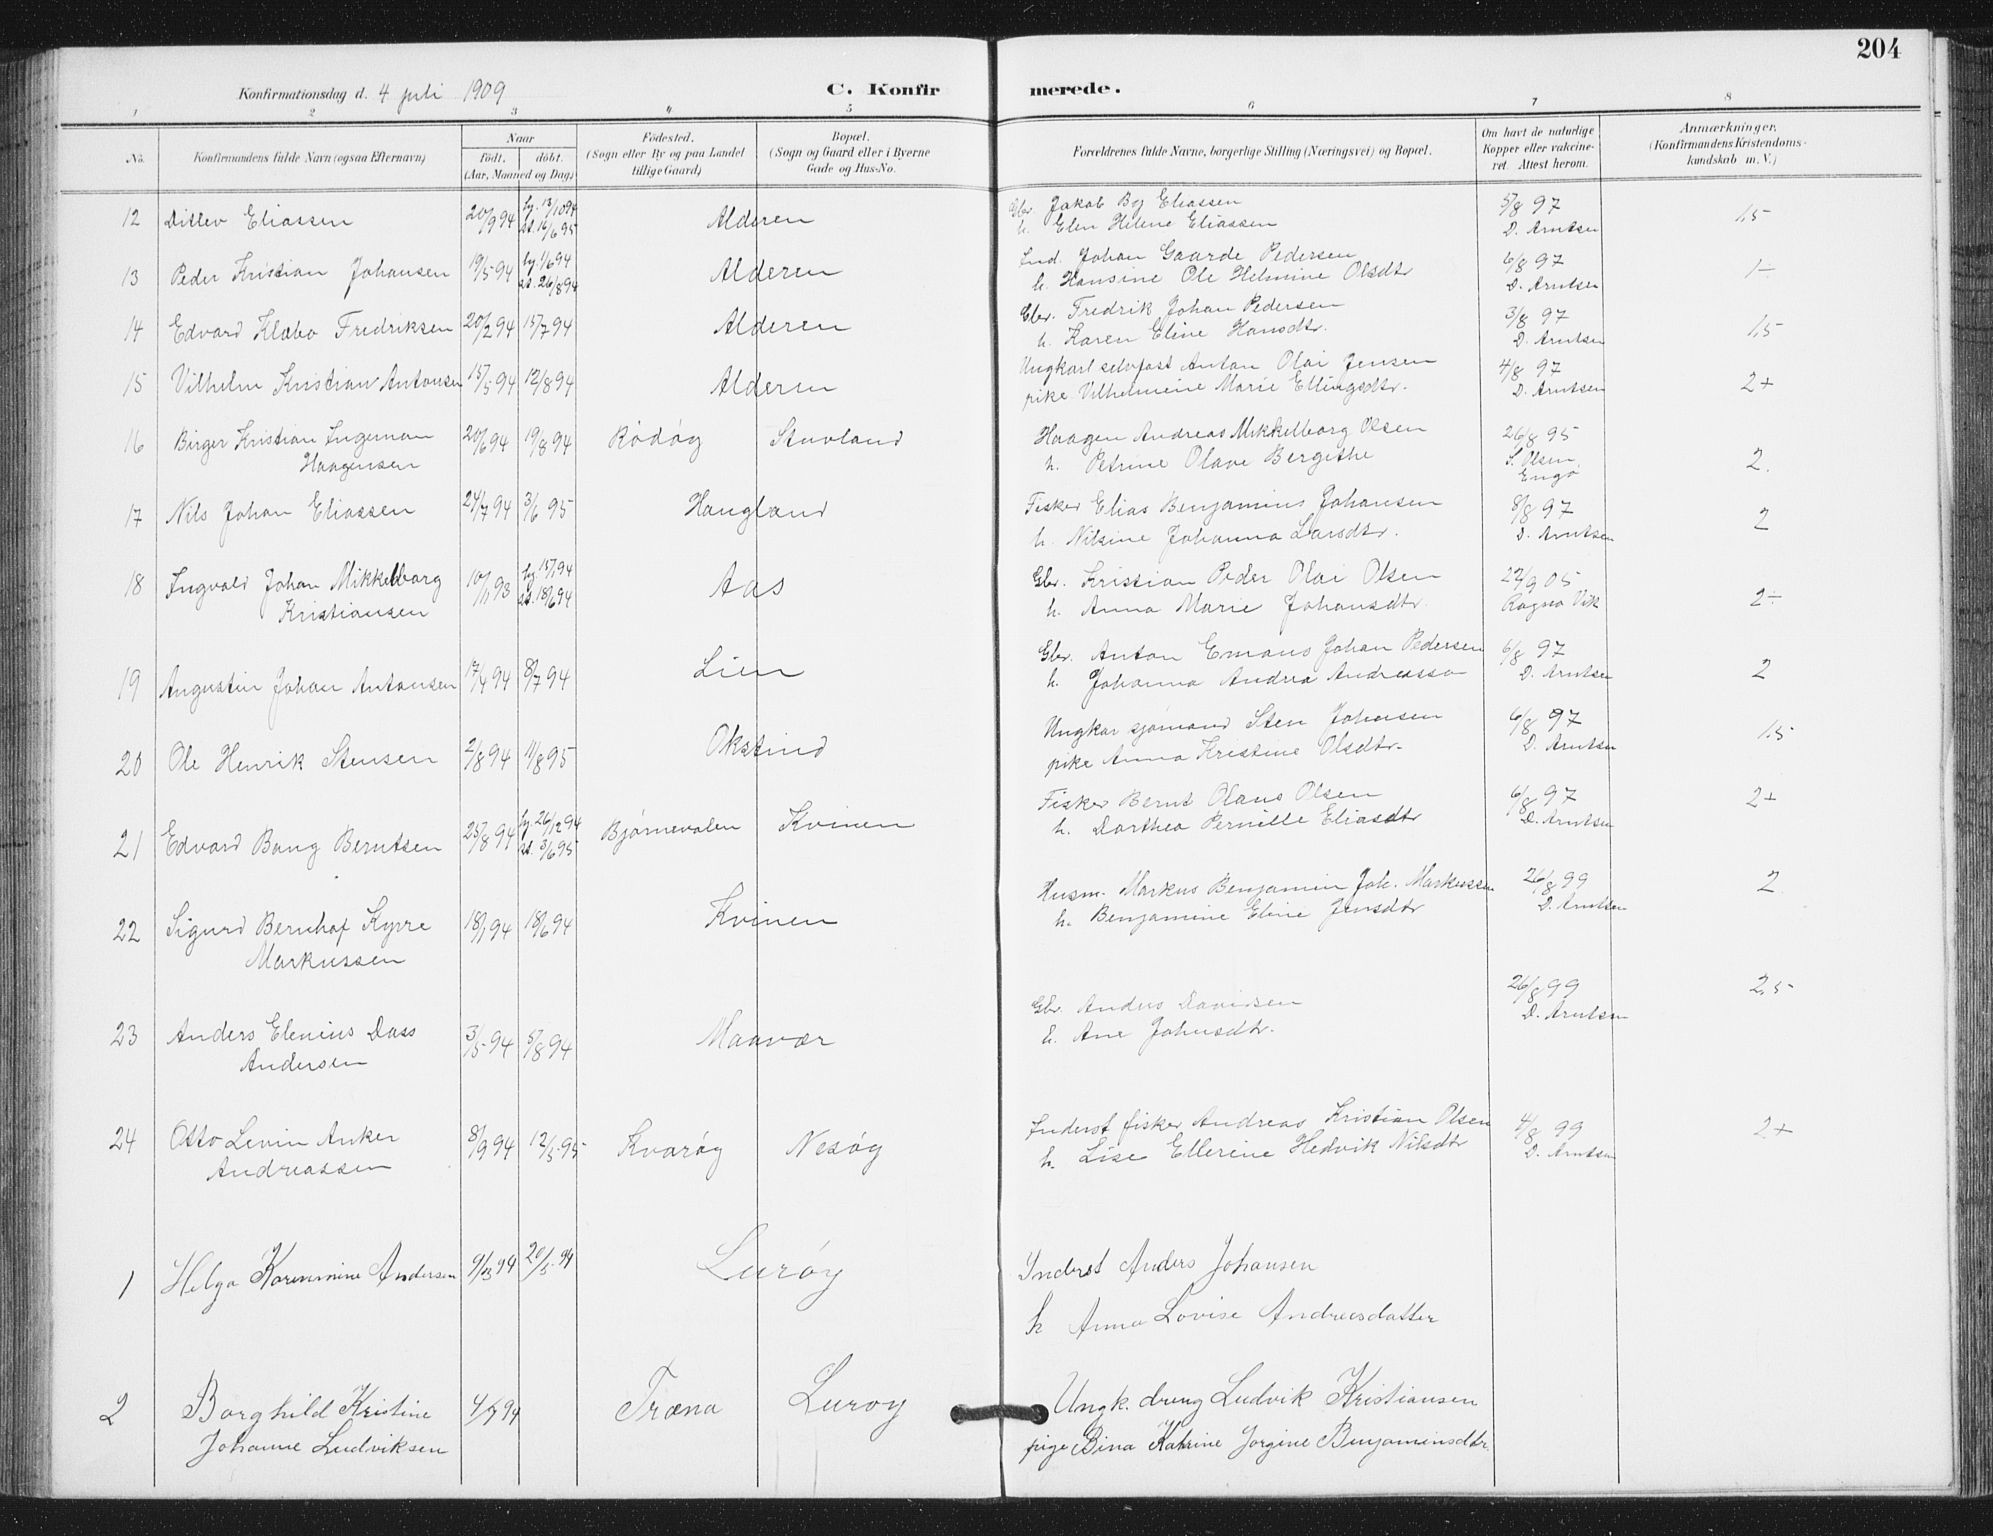 204
Konfirmationsdag d. 4 juli 1909 C. Konfirmerede.
1 2 3 4 5 6 7 8
No. Konfirmandens fulde Navn (ogsaa Efternavn) Naar født. døbt. (Aar, Maaned og Dag) Fødested. (Sogn eller By og paa Landet tillige Gaard) Bopæl. (Sogn og Gaard eller i Byerne Gade og Hus-No. Forældrenes fulde Navne, borgerlige Stilling (Næringsvei) og Bopæl. Om havt de naturlige Kopper eller vakcineret. Attest herom. Anmærkninger. (Konfirmandens Kristendomskundskab m. V.)
12 Ditlev Eliassen 20/9 94 hj. 13/10 94 Alderen Gbr. Jakob Boj Eliassen 5/8 97 1.5
st. 16/6 95 h. Elen Helene Eliassen D. Arntsen
13 Peder Kristian Johansen 19/5 94 hj. 1/6 94 Alderen Ind. Johan Gaarde Pedersen 6/8 97 1-
st. 26/8 94 h. Hansine Ole Helmine Olsdtr D. Arntsen
14 Edvard Klæbo Fredriksen 20/2 94 15/7 94 Alderen Gbr. Fredrik Johan Pedersen 3/8 97 1.5
h. Karen Eline Hansdtr. D. Arntsen
15 Vilhelm Kristian Antonsen 15/5 94 12/8 94 Alderen Ungkarl selvfost Anton Olai Jensen 4/8 97 2+
pike Vilhelmeine Marie Ellingsdtr. D. Arntsen
16 Birger Kristian Ingeman 20/6 94 19/8 94 Rödöy Stuvland Haagen Andreas Mikkelborg Olsen 26/8 95 2.
Haagensen h. Petrine Olave Bergithe S. Olsen
Engø
17 Nils Johan Eliassen 24/7 94 3/6 95 Haugland Fisker Elias Benjamins Johansen 8/8 97 2
h. Nilsine Johanna Larsdtr. D. Arntsen
18 Ingvald Johan Mikkelborg 10/11 93 hj. 15/1 94 Aas Gbr. Kristian Peder Olai Olsen 22/9 05 2÷
Kristiansen st. 18/6 94 h. Anna Marie Johansdtr. Ragna Vik
19 Augustin Johan Antonsen 17/4 94 8/7 94 Lien Gbr. Anton Emans Johan Pedersen 6/8 97 2
h. Johanna Andrea Andreassa D. Arntsen
20 Ole Henrik Stensen 2/8 94 11/8 95 Okstind Ungkar sjømand Sten Johansen 6/8 97 1.5
pike Anna Kristine Olsdtr. D. Arntsen
21 Edvard Bang Berntsen 25/8 94 hj. 26/12 94 Bjørnevalen Kvinen Fisker Bernt Olaus Olsen 6/8 97 2+
st. 3/6 95 h. Dorthea Pernille Eliasdtr D. Arntsen
22 Sigurd Bernhof Kyrre 18/1 94 18/6 94 Kvinen Husm. Markus Benjamin Joh. Markussen 26/8 99 2
Markussen h. Benjamine Eline Jensdtr D. Arntsen
23 Anders Elenius Dass 3/5 94 5/8 94 Maavær Gbr. Anders Davidsen 26/8 99 2.5
Andersen h. Ane Johnsdtr. D. Arntsen
24 Otto Levin Anker 8/9 94 12/5 95 Kvarøy Nesøy Inderst fisker Andreas Kristian Olsen 4/8 99 2+
Andreassen h. Lise Ellerine Hedvik Nilsdtr D. Arntsen
1 Helga Karenmine Andersen 9/3 94 20/5 94 Lurøy Inderst Anders Johansen
h Anna Lovise Andreasdatter
2 Borghild Kristine 4/7 94 Træna Lurøy Ungk. dreng Ludvik Kristiansen
Johanne Ludviksen pige Bina Katrine Jorgine Benjaminsdtr.